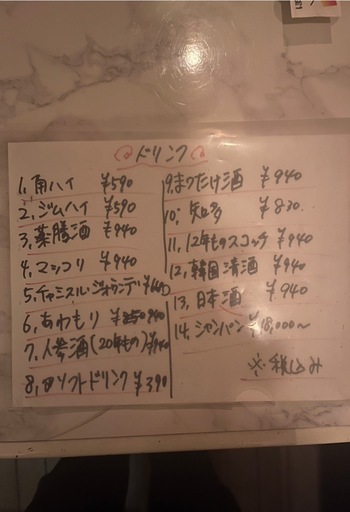 ドリンク
1. 角ハイ ¥590
2. ジムハイ ¥590
3. 薬膳酒 ¥940
4. マッコリ ¥940
5. チャミスル ジオランデ
6. あわもり
7. 人参酒(20年もの) ¥940
8. ソフトドリンク ¥390
9. まつたけ酒 ¥940
10. 知多 ¥830
11. 12年ものスコッチ ¥940
12. 韓国清酒 ¥940
13. 日本酒 ¥940
14. シャンパン ¥18,000〜
※税込み